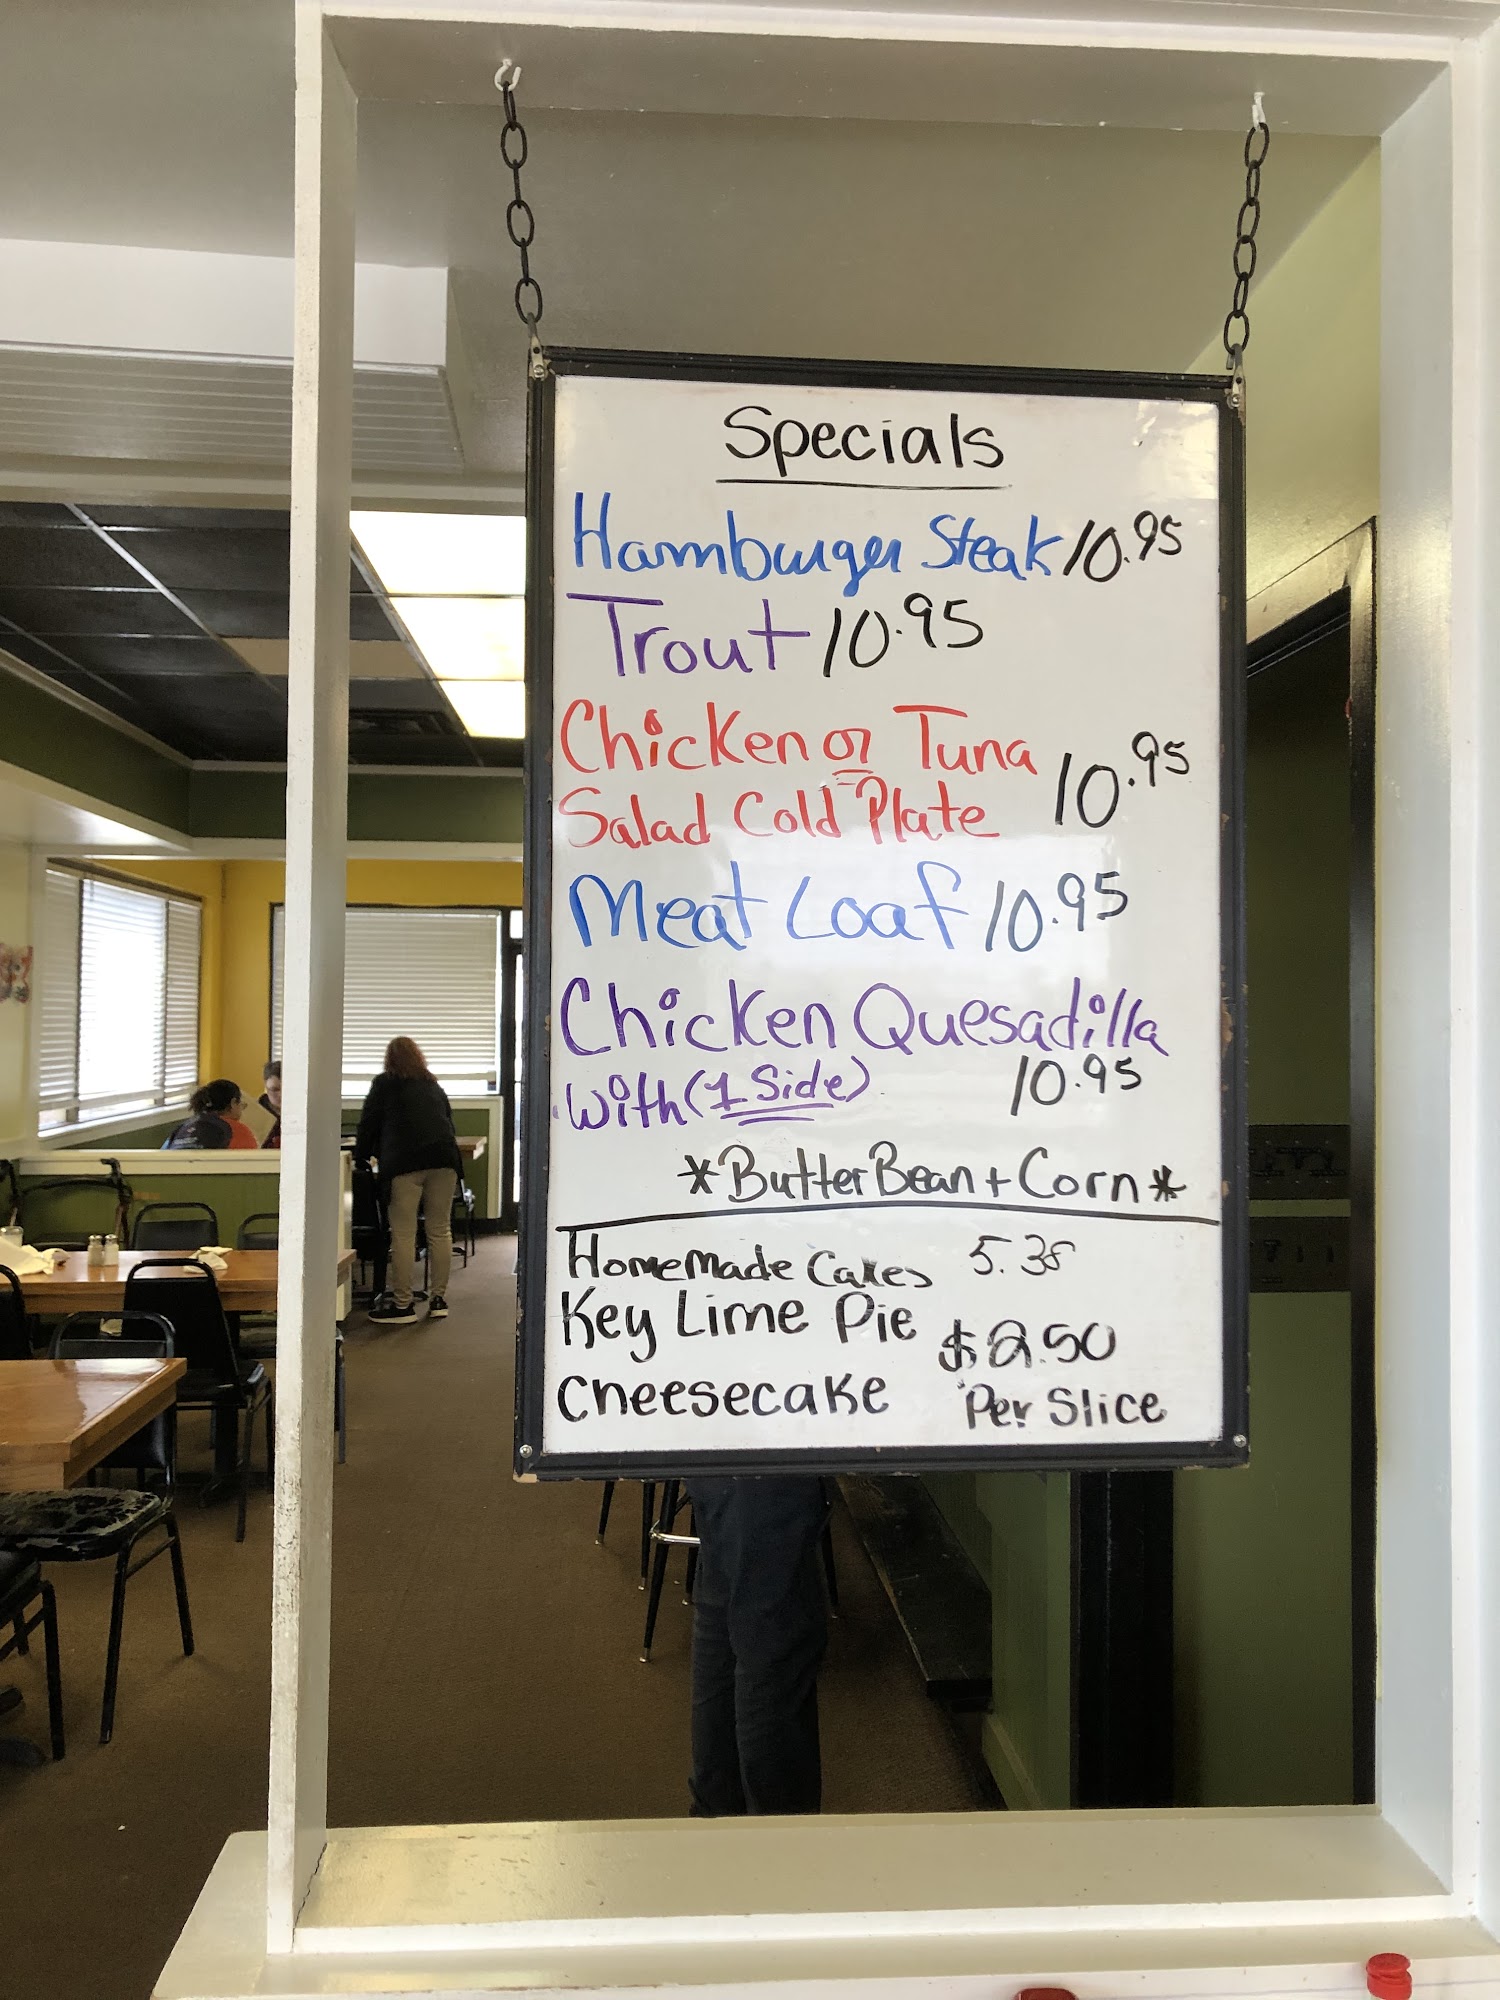 Specials
Hamburger Steak 10.95
Trout 10.95
Chicken or Tuna
Salad Cold Plate 10.95
Meat Loaf 10.95
Chicken Quesadilla
With (1 Side) 10.95
*Butter Bean + Corn*
Homemade Cakes 5.38
Key Lime Pie $2.50
Cheesecake Per Slice